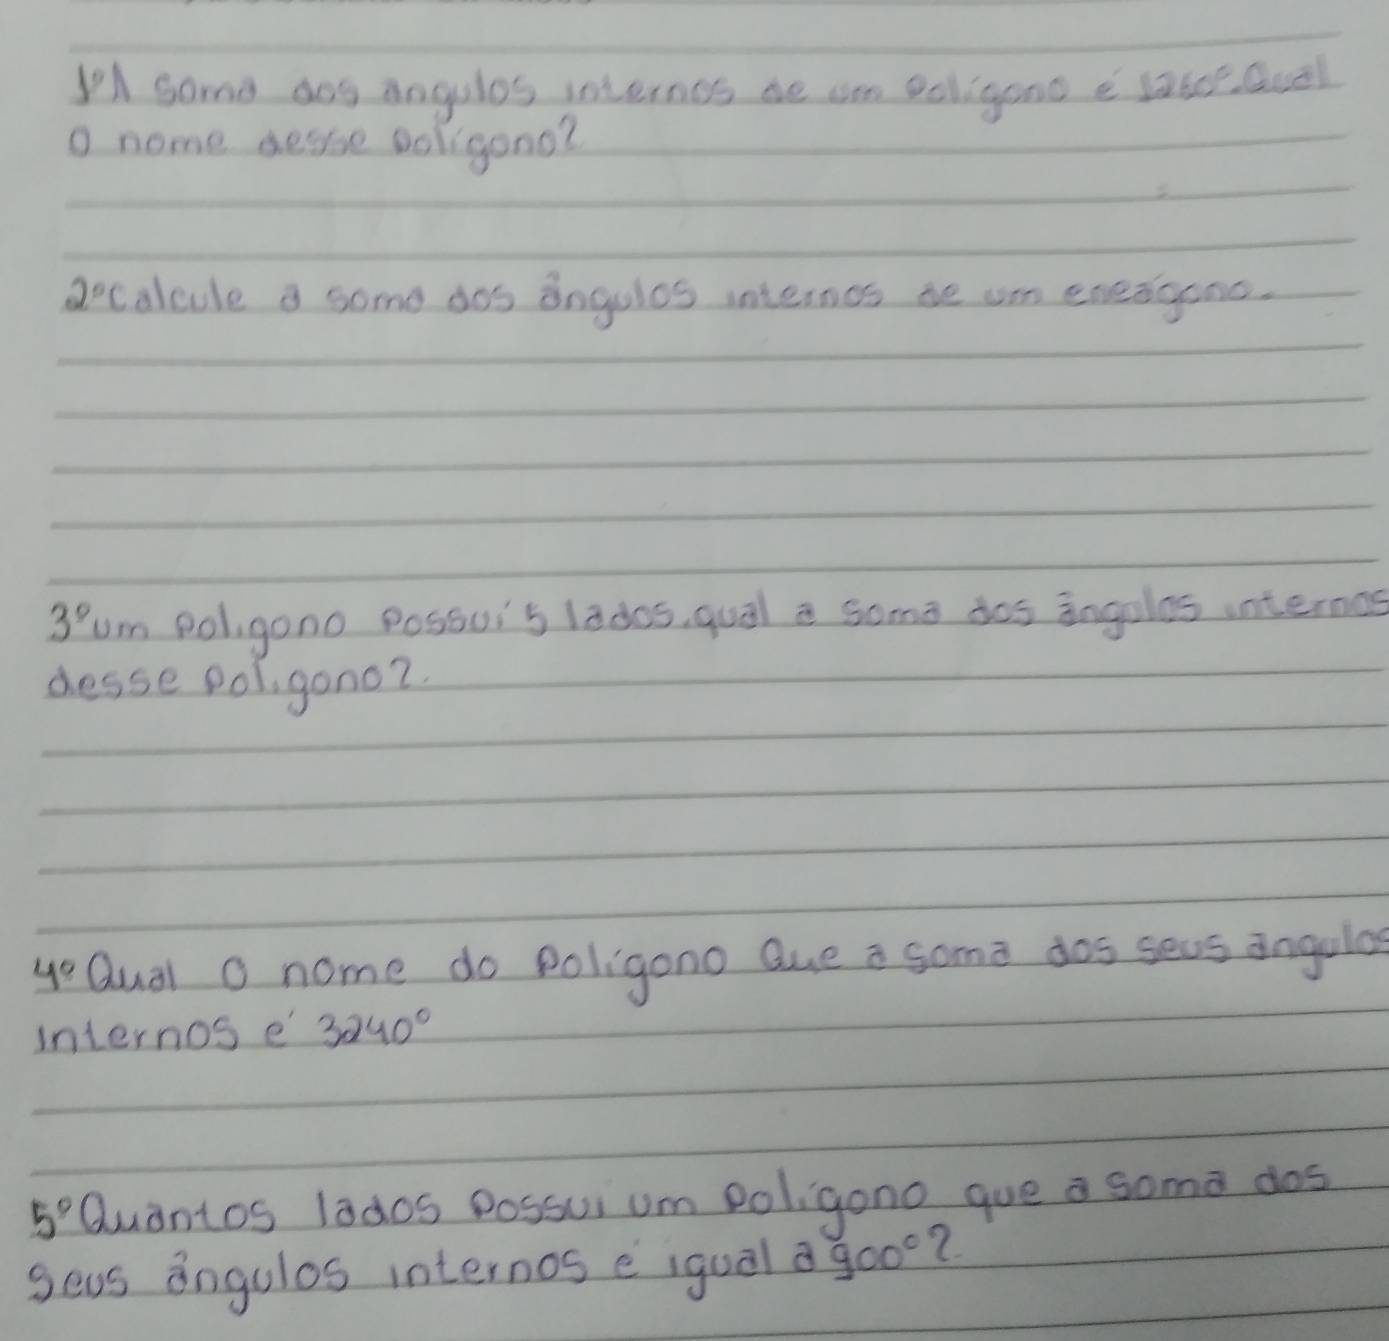 1º A soma dos angulos internos de um poligono é 1260º. Qual
O nome desse polígono?
2º Calcule a soma dos ângulos internos de um eneágono.
3º um poligono possui 5 lados, qual a soma dos ângulos internos
desse poligono?.
4º Qual O nome do polígono Que a soma dos seus ângulos
internos é 3240º
5º Quantos lados possui um polígono que a soma dos
seus ângulos internos é igual a 900º?